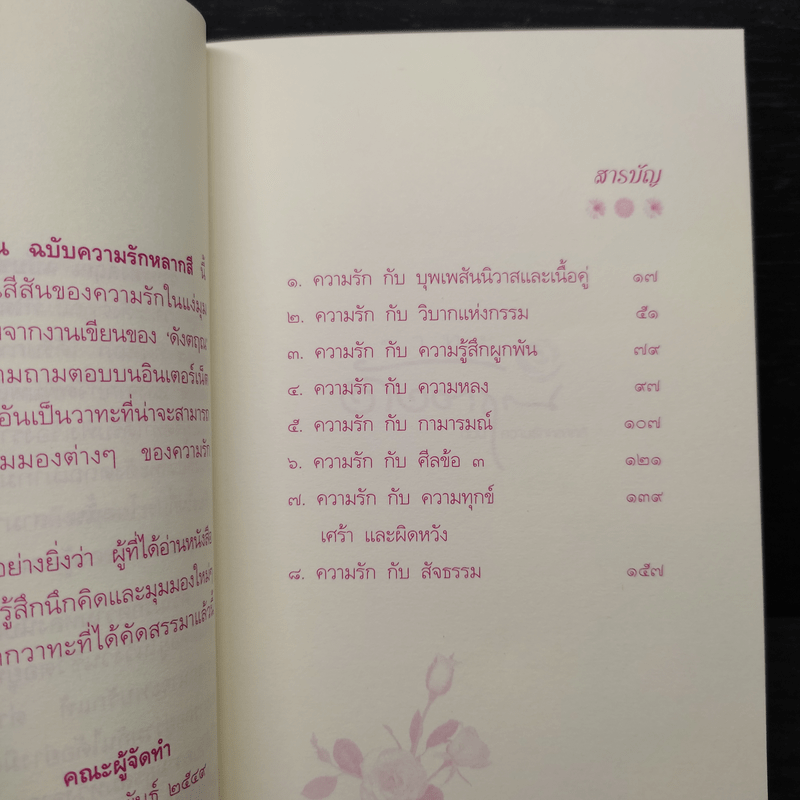 ฉบับความรักหลากสี นี้
สีสันของความรักในแง่มุม
จากงานเขียนของ 'ดังตฤณ'
ถามตอบบนอินเตอร์เน็ต
อันเป็นวาทะที่น่าจะสามารถ
มุมมองต่างๆ ของความรัก
อย่างยิ่งว่า ผู้ที่ได้อ่านหนังสือ
รู้สึกนึกคิดและมุมมองใหม่ๆ
วาทะที่ได้คัดสรรมาแล้วนี้
คณะผู้จัดทำ
๒๕๔๙
สารบัญ
๑. ความรัก กับ บุพเพสันนิวาสและเนื้อคู่ ๑๗
๒. ความรัก กับ วิบากแห่งกรรม ๕๑
๓. ความรัก กับ ความรู้สึกผูกพัน ๗๙
๔. ความรัก กับ ความหลง ๙๗
๕. ความรัก กับ กามารมณ์ ๑๐๗
๖. ความรัก กับ ศีลข้อ ๓ ๑๒๑
๗. ความรัก กับ ความทุกข์ ๑๓๙
เศร้า และผิดหวัง
๘. ความรัก กับ สัจธรรม ๑๕๗